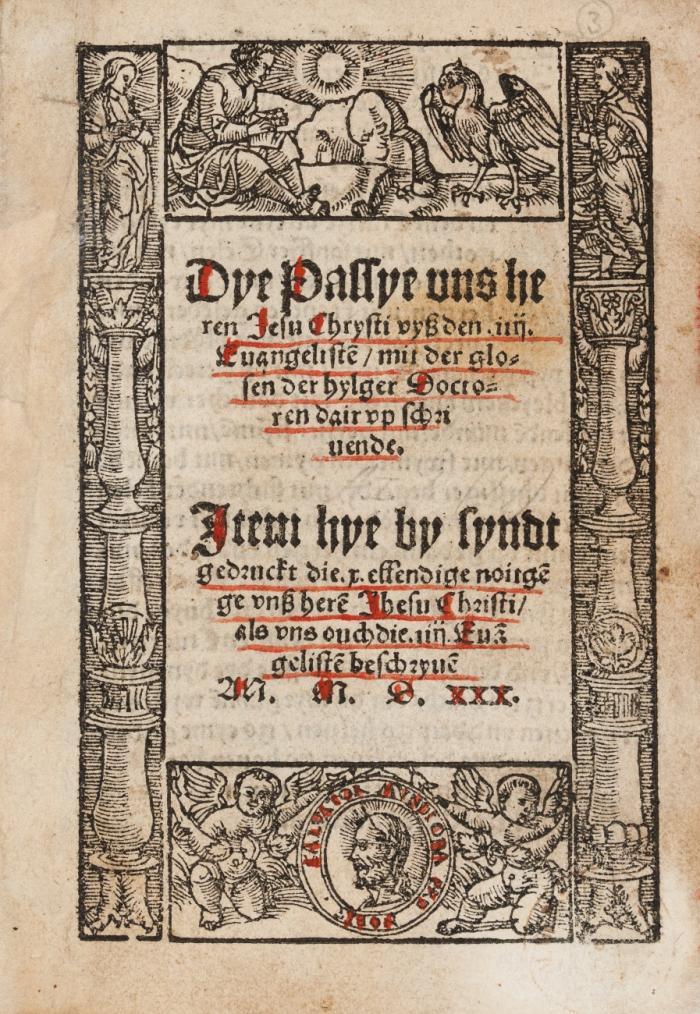 ③
Dye Passye vns he
ren Jesu Chrysti vyß den .iiij.
Euangelistē / mit der glo⸗
sen der hylger Docto⸗
ren dair vp schri
uende.
Item hye by syndt
gedruckt die .x. ellendige noitgē
ge vnß herē Jhesu Christi /
als vns ouch die .iiij. Euā
gelistē beschryuē
M. M. D. xxx.
SALVATOR MVNDI ORA PRO